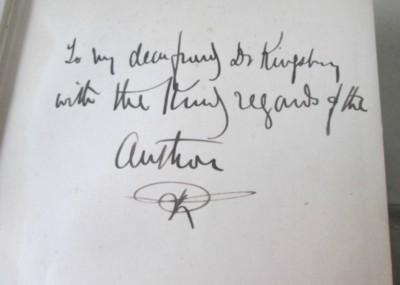 To my dear friend Dr Kingsbury
with the kind regards of the
Author